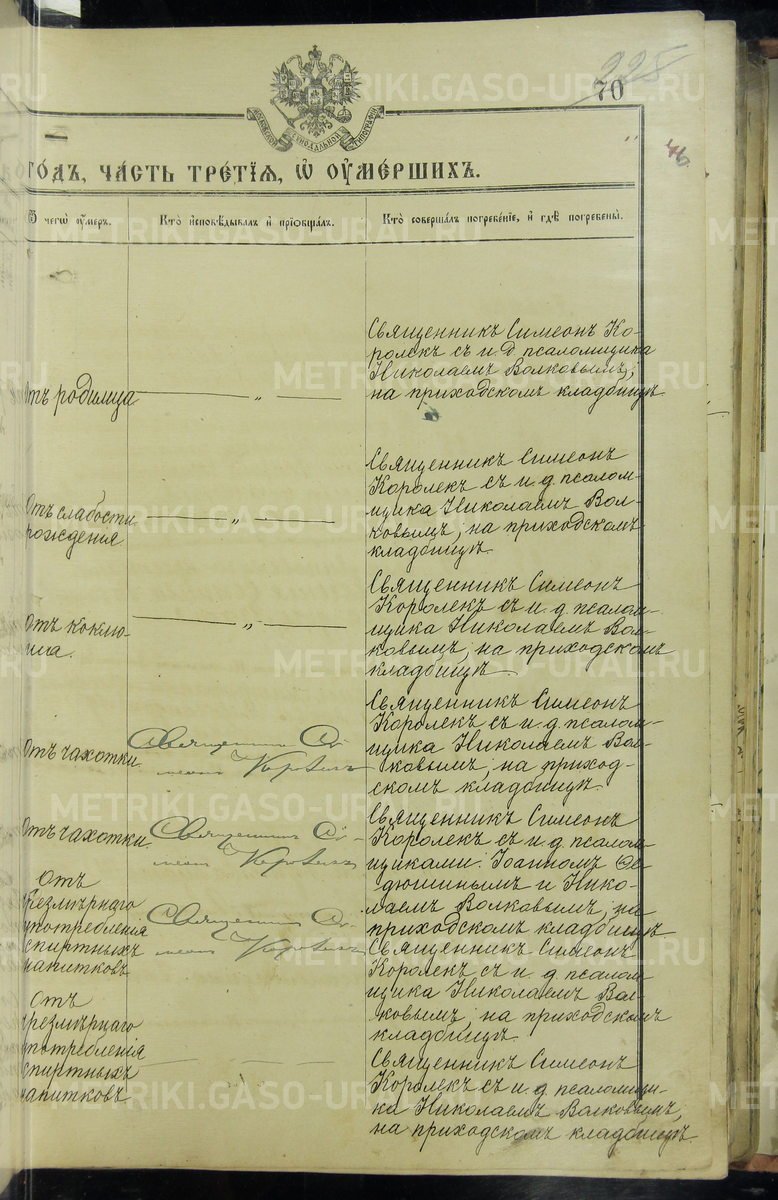 225
70
46
МОСКОВСКОЙ СѴНОДАЛЬНОЙ ТИПОГРАФІИ
го́дъ, ча́сть тре́тїѧ, ѡ҆ ᲂу҆ме́ршихъ.
Ѿ чегѡ̀ ᲂу҆́меръ.
Кто̀ и҆сповѣ́дывалъ и҆ прїѡбща́лъ.
Кто̀ соверша́лъ погребе́нїе, и҆ гдѣ̀ погребены̀.
Отъ родимца
— „ —
Священникъ Симеонъ Ко-
ролекъ съ и. д. псаломщика
Николаемъ Волковымъ,
на приходскомъ кладбищѣ.
Отъ слабости
рожденія
— „ —
Священникъ Симеонъ
Королекъ съ и. д. псалом-
щика Николаемъ Вол-
ковымъ, на приходскомъ
кладбищѣ.
Отъ коклю-
ша.
— „ —
Священникъ Симеонъ
Королекъ съ и. д. псалом-
щика Николаемъ Вол-
ковымъ, на приходскомъ
кладбищѣ.
Отъ чахотки.
Священникъ Си-
меонъ Королекъ
Священникъ Симеонъ
Королекъ съ и. д. псалом-
щика Николаемъ Вол-
ковымъ, на приход-
скомъ кладбищѣ.
Отъ чахотки.
Священникъ Си-
меонъ Королекъ
Священникъ Симеонъ
Королекъ съ и. д. псалом-
щиками: Іоанномъ Ѳе-
дюшинымъ и Нико-
лаемъ Волковымъ, на
приходскомъ кладбищѣ
Отъ
чрезмѣрнаго
употребленія
спиртныхъ
напитковъ
Священникъ Си-
меонъ Королекъ
Священникъ Симеонъ
Королекъ съ и. д. псалом
щика Николаемъ Вол-
ковымъ, на приходскомъ
кладбищѣ.
Отъ
чрезмѣрнаго
употребленія
спиртныхъ
напитковъ
—
Священникъ Симеонъ
Королекъ съ и. д. псаломщи-
ка Николаемъ Волковымъ,
на приходскомъ кладбищѣ.
METRIKI.GASO-URAL.RU